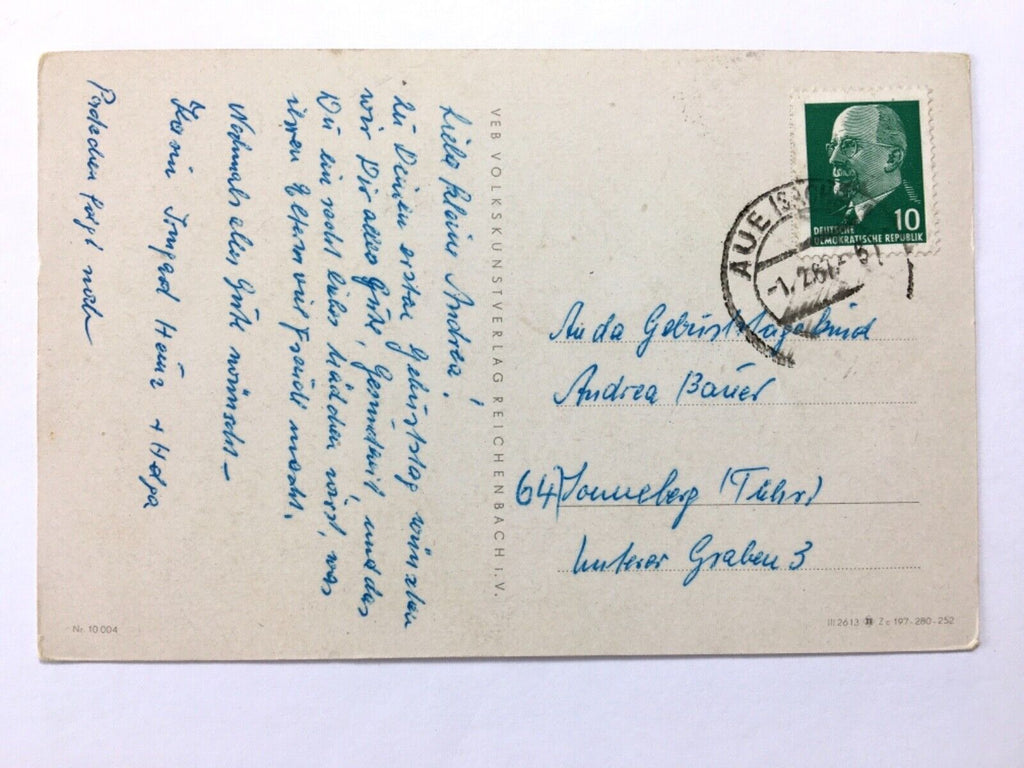 Liebe kleine Andrea!
Zu Deinem ersten Geburtstag wünschen
wir Dir alles Gute, Gesundheit, und das
Du ein recht liebes Mädchen wirst, was
ihren Eltern viel Freude macht.
Nochmals alles Gute wünscht –
Karin Irmgard Heinz + Holga
Päckchen folgt noch
VEB VOLKSKUNSTVERLAG REICHENBACH I.V.
10
DEUTSCHE
DEMOKRATISCHE REPUBLIK
AUE
An da Geburtstagskind
Andrea Bauer
64) Sonneberg (Thür)
Unterer Graben 3
Nr. 10 004
III 26 13 Zc 197-280-252